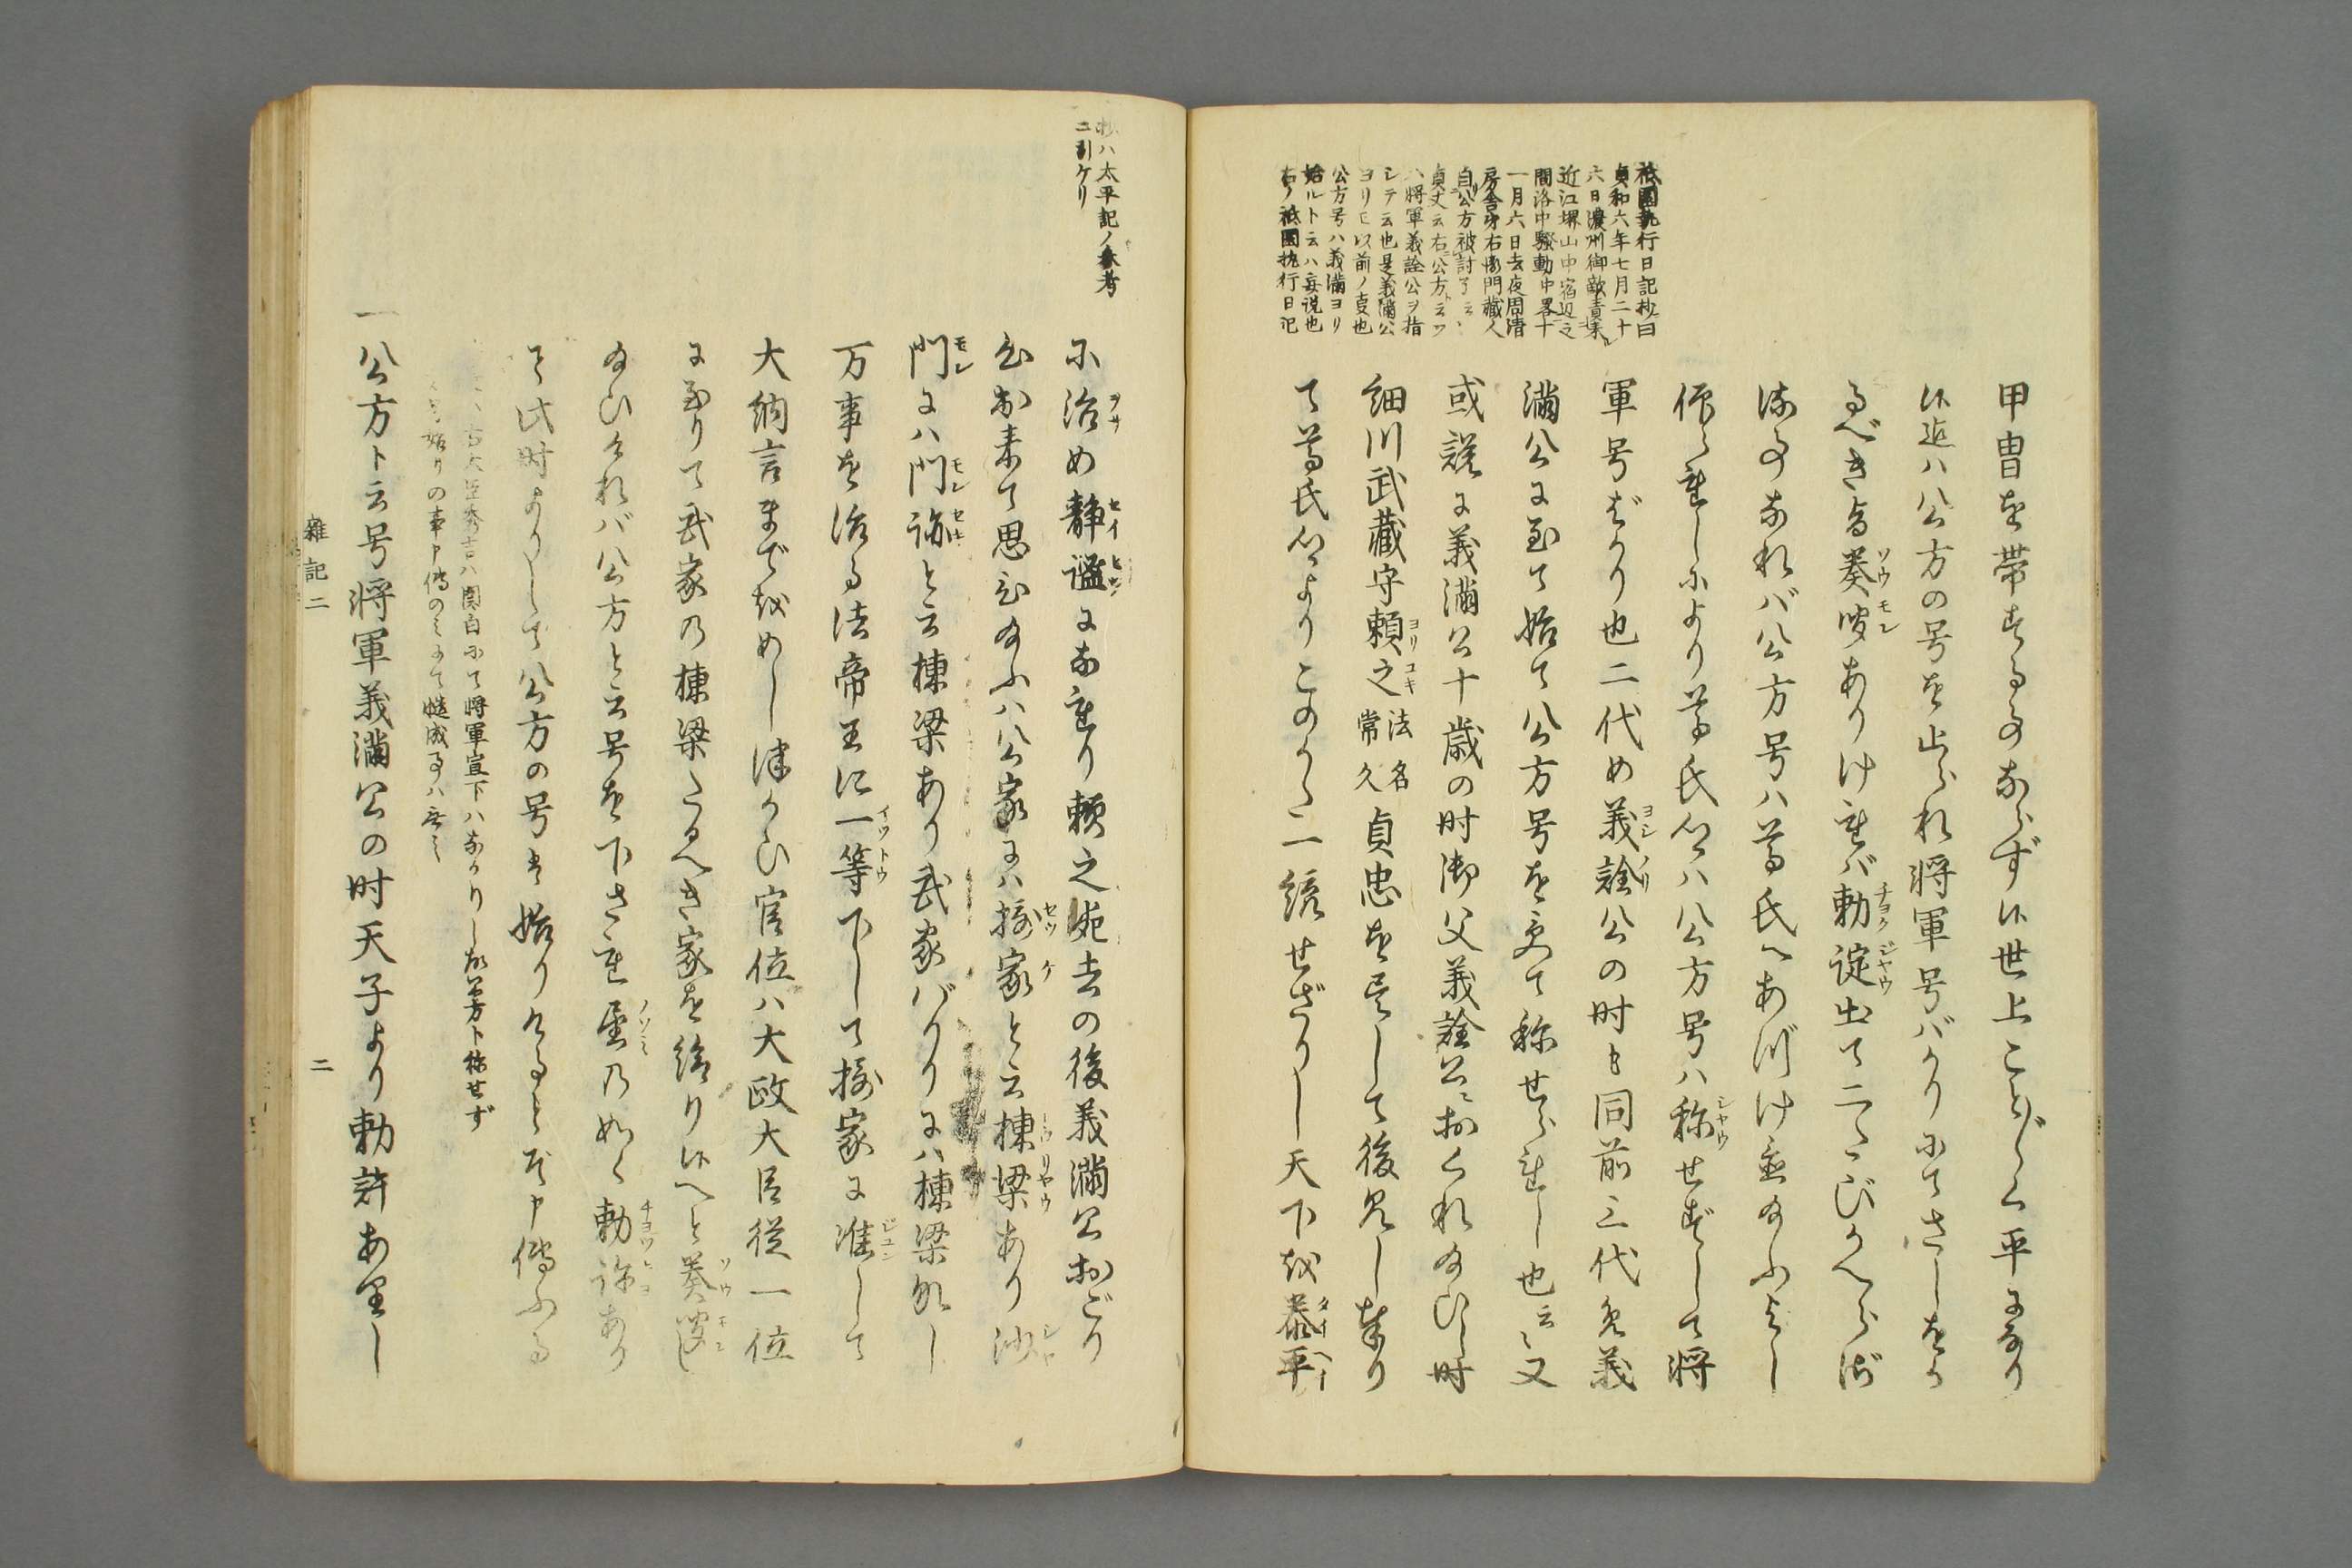 祇園執行日記抄曰
貞和六年七月二十
六日濃州御敵責来
近江堺山中宿辺之
間洛中騒動中畧十
一月六日去夜周済
房舎弟右衛門蔵人
自公方被討了云々
貞丈云右ニ公方ト云フ
ハ将軍義詮公ヲ指
シテ云也是義満公
ヨリモ以前ノ事也
公方号ハ義満ヨリ
始ルト云ハ妄説也
右ノ祇園執行日記
甲冑を帯する事ならず候世上ことごとく平になり
候迄ハ公方の号を止られ将軍号バかりにてさしをか
るべき旨奏聞ありけれバ勅諚出て二たびかへらざ
る事なれバ公方号ハ尊氏へあづけ置給ふよし
仰られしにより尊氏公ハ公方号ハ称せずして将
軍号ばかり也二代め義詮公の時も同前三代め義
満公に至て始て公方号を更て称せられし也云々又
或説に義満公十歳の時御父義詮公におくれ給ひし時
細川武蔵守頼之法名常久貞忠を尽して後見し奉り
て尊氏公よりこのかた一統せざりし天下を泰平
抄ハ太平記ノ参考
ニ引ケリ
に治め静謐になれり頼之死去の後義満公おごり
出来て思ひ給ふハ公家にハ摂家と云棟梁あり沙
門にハ門跡と云棟梁あり武家バかりにハ棟梁なし
万事を治る法帝王に一等下して摂家に准して
大納言まで極めし御かひ官位ハ大政大臣従一位
になりて武家の棟梁たるべき家を給り候へと奏聞し
給ひけれバ公方と云号を下され望の如く勅許あり
て此時よりして公方の号は始りけるとぞ申傳ふる
右大臣秀吉ハ関白にて将軍宣下ハなかりし故公方ト称せず
始りの事申傳のミにて慥成事ハ無之
一公方ト云号将軍義満公の時天子より勅許ありし
雑記二
二